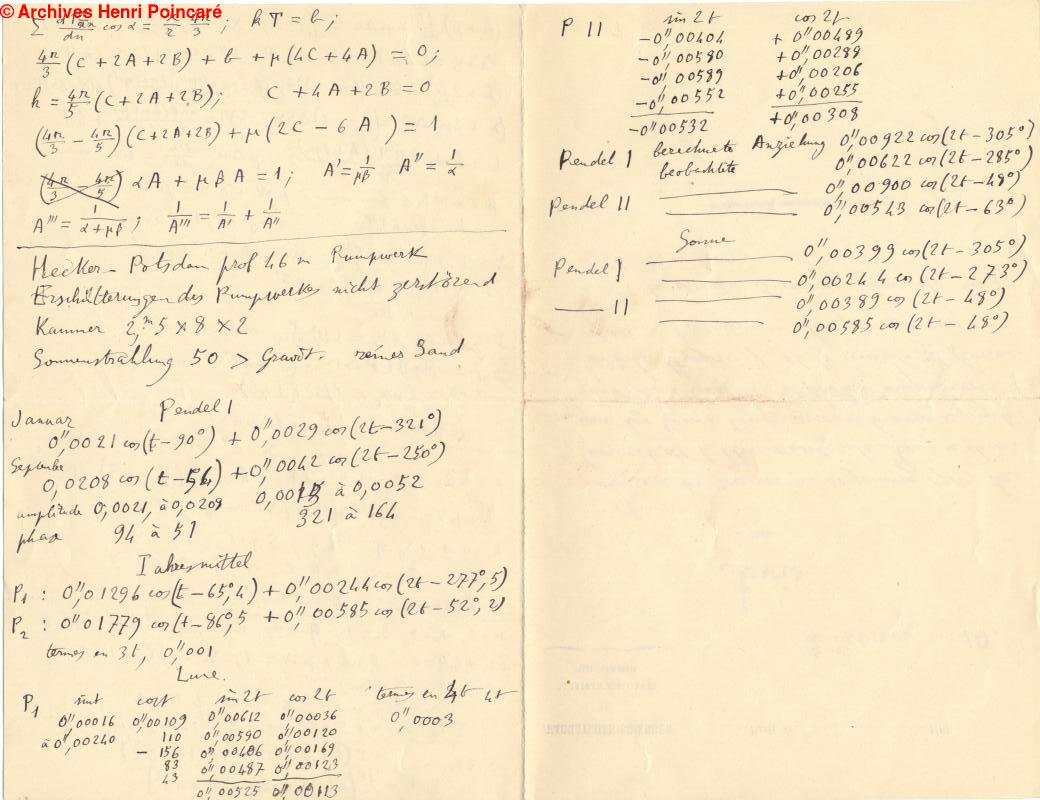 © Archives Henri Poincaré
cos α = ; k T = b;
4π/3 (C + 2A + 2B) + b + μ(4C + 4A) = 0;
k = 4π/5 (C + 2A + 2B); C + 4A + 2B = 0
(4π/3 − 4π/5)(C + 2A + 2B) + μ(2C − 6A) = 1
(4π/3 − 4π/5) αA + μβA = 1; A' = 1/μβ A'' = 1/α
A''' = 1/α+μβ; 1/A''' = 1/A' + 1/A''
Hecker – Potsdam prof 46 m Pumpwerk
Erschütterungen des Pumpwerkes nicht zerstörend
Kammer 2,m5 × 8 × 2
Sonnenstrahlung 50 > Gravit. reines Sand
Pendel I
Januar
0'',0021 cos(t−90°) + 0'',0029 cos(2t−321°)
Septembre
0,0208 cos(t−54) + 0'',0042 cos(2t−250°)
amplitude 0,0021, à 0,0209 0,0013 à 0,0052
phase 94 à 51 321 à 164
Jahresmittel
P1 : 0'',01296 cos(t−65°,4) + 0'',00244 cos(2t−277°,5)
P2 : 0''01779 cos(t−86°,5 + 0'',00585 cos(2t−52°,2)
termes en 3t, 0'',001
Lune.
P1 sin t cos t sin 2t cos 2t termes en 4t 4t
0'',00016 0'',00109 0'',00612 0'',00036 0'',0003
à 0'',00240 110 0'',00590 0'',00120
− 156 0'',00406 0'',00169
83 0'',00487 0'',00123
43 0'',00525 0'',00113
P II sin 2t cos 2t
−0'',00404 + 0'',00489
−0'',00580 +0'',00289
−0'',00589 +0'',00206
−0'',00552 +0'',00255
−0''00532 +0'',00308
Pendel I berechnete Anziehung 0'',00922 cos(2t−305°)
beobachtete 0'',00622 cos(2t−285°)
Pendel II 0'',00900 cos(2t−48°)
0'',00543 cos(2t−63°)
Sonne
Pendel I 0'',00399 cos(2t−305°)
0'',00244 cos(2t−273°)
— II 0'',00389 cos(2t−48°)
0'',00585 cos(2t−48°)